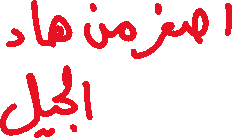 اصغر من هاد
الجيل